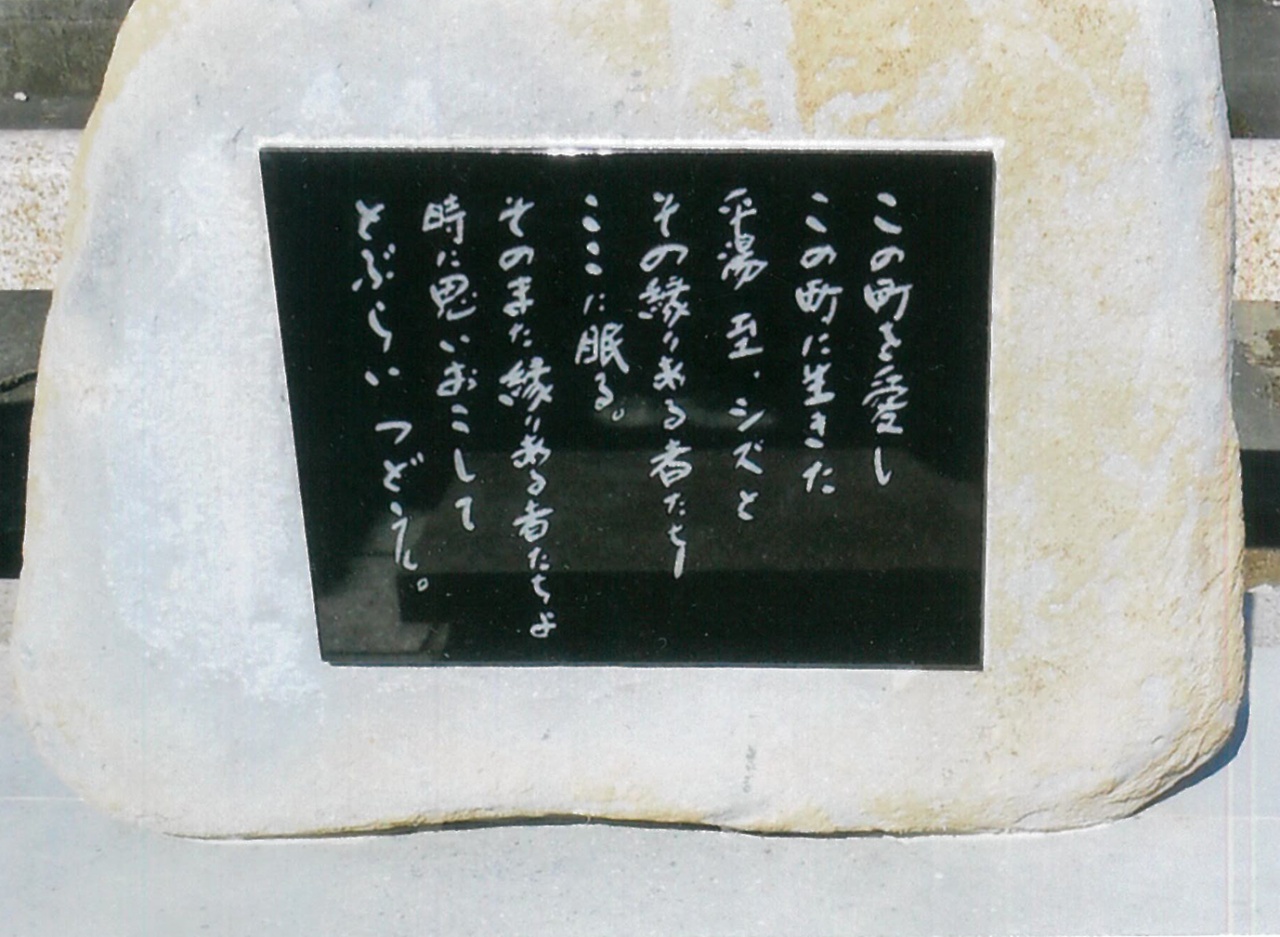 この町を愛し
この町に生きた
平湯 至・シズと
その縁りある者たち
ここに眠る。
そのまた縁りある者たちよ
時に思いおこして
とぶらい つどうべし。